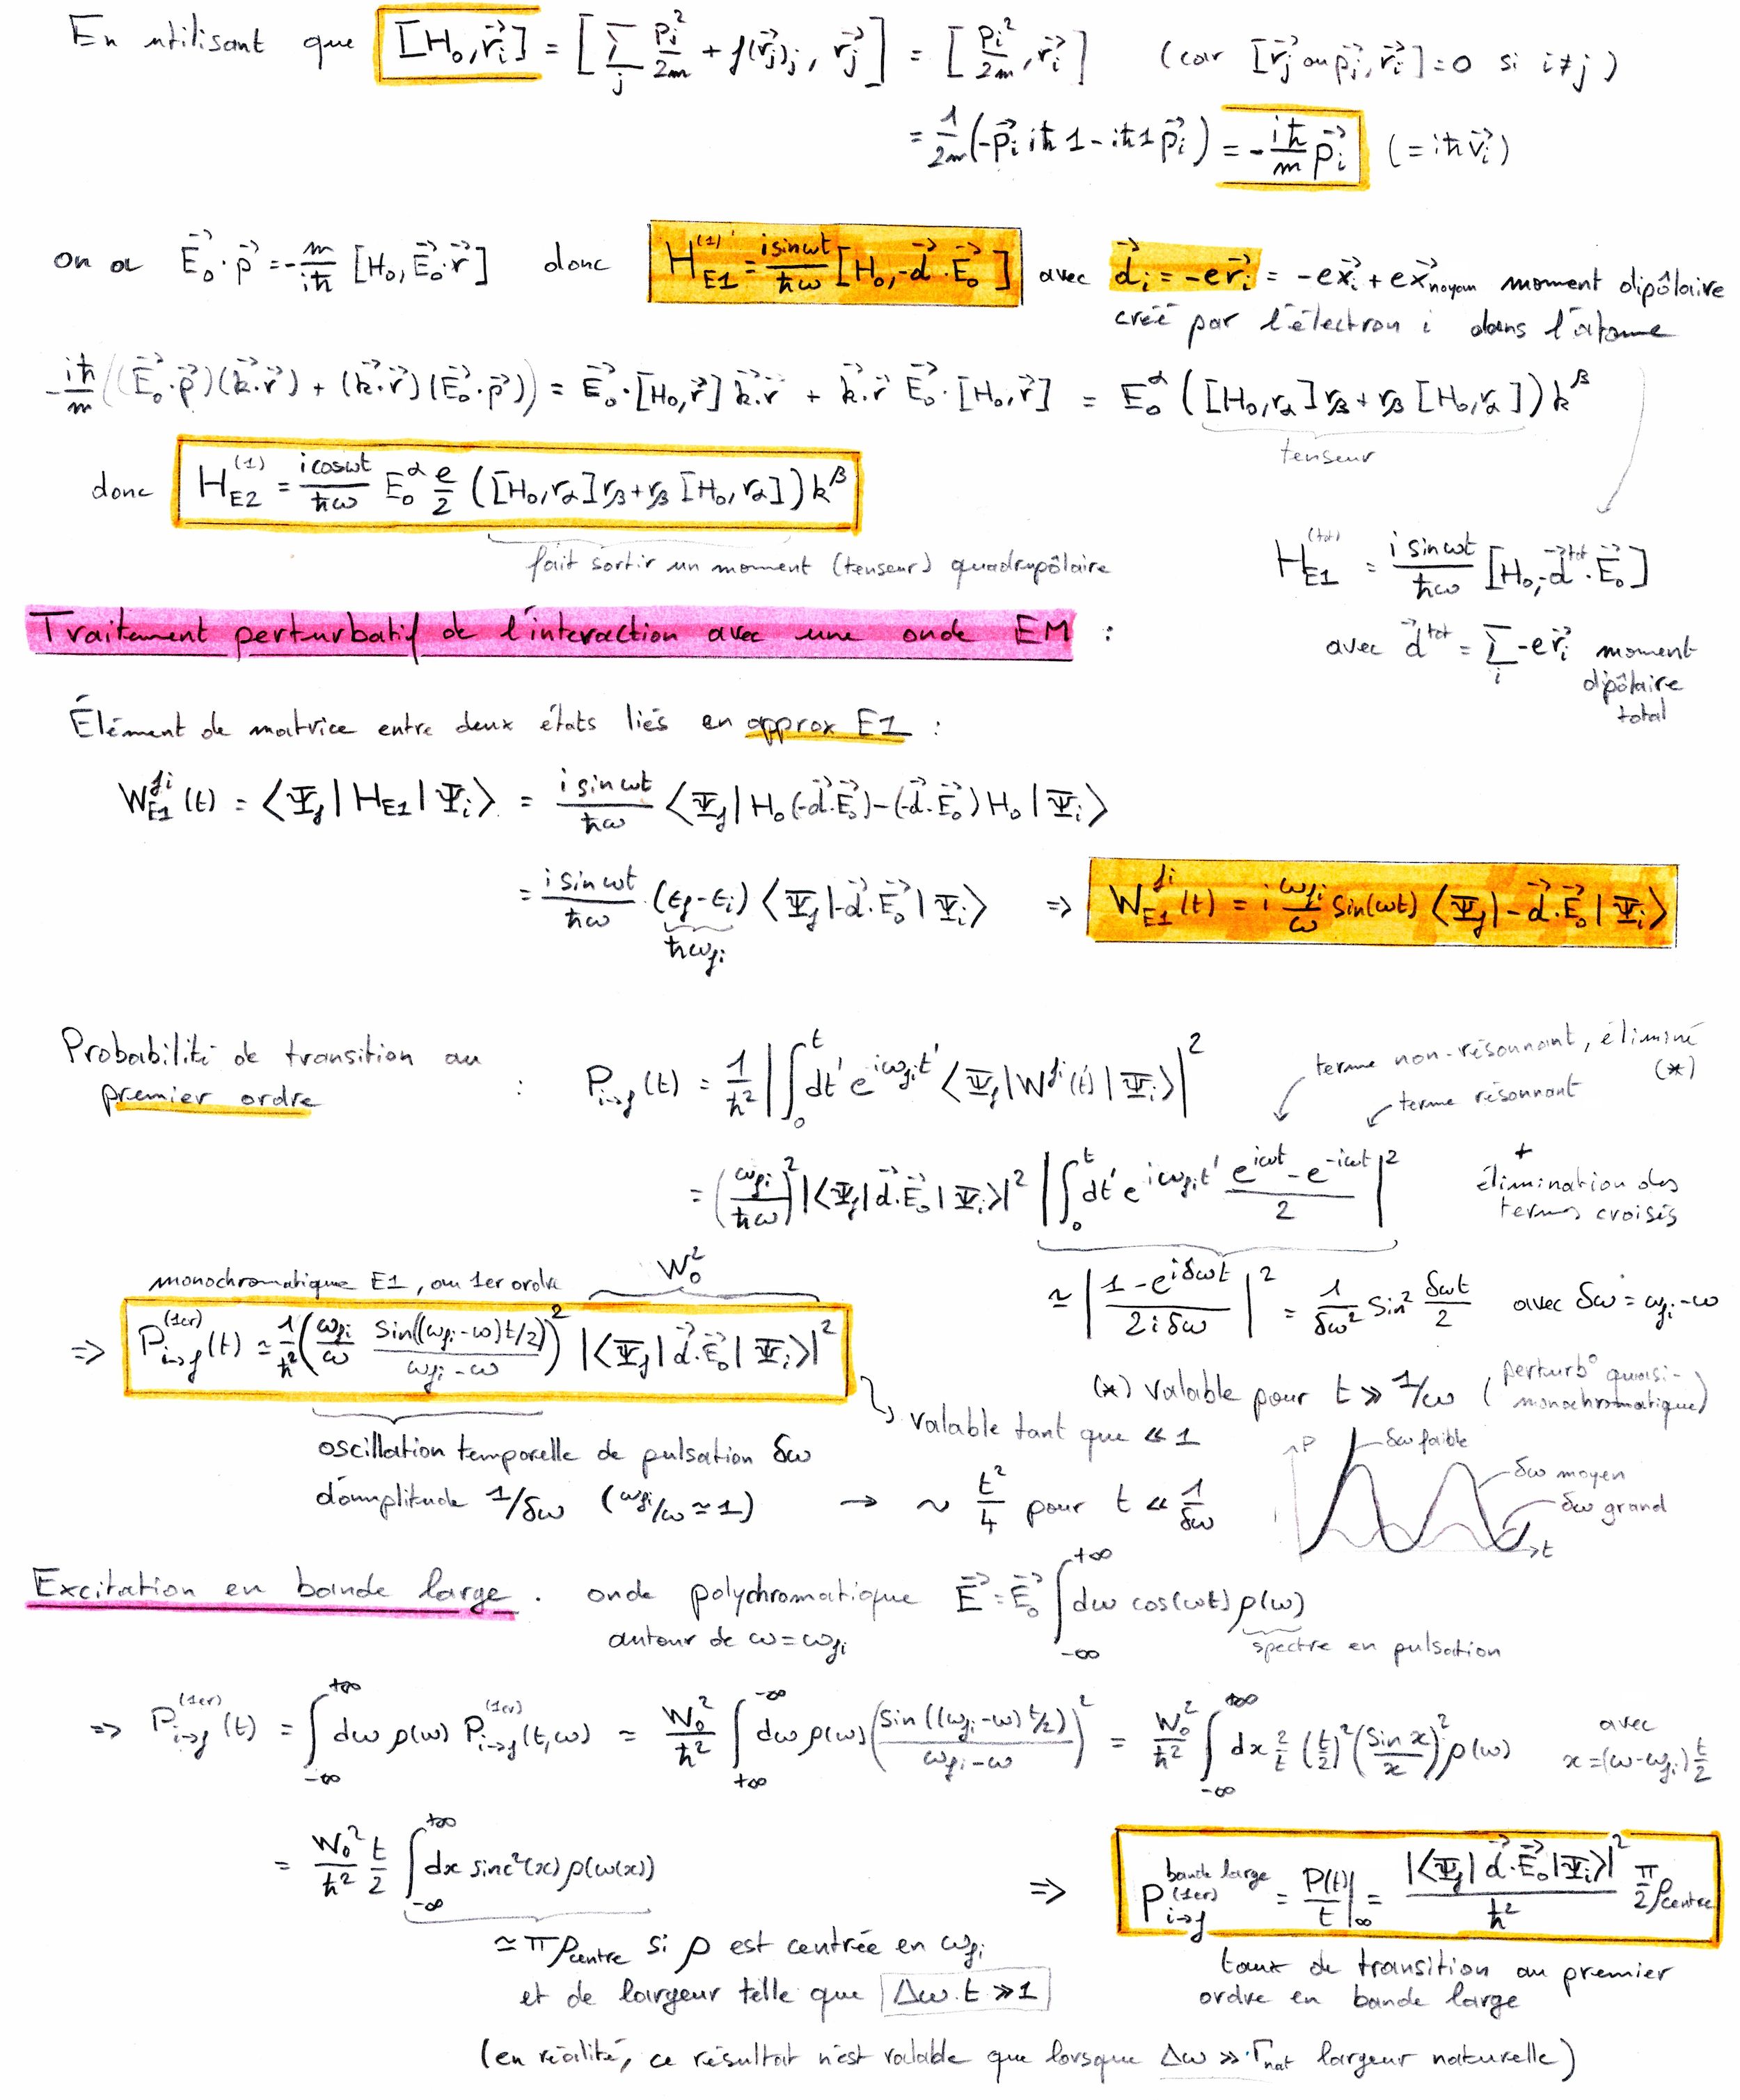 En utilisant que [H₀, r⃗ᵢ] = [∑ⱼ pⱼ²/2m + f(r⃗ⱼ)ⱼ, r⃗ⱼ] = [pᵢ²/2m, r⃗ᵢ] (car [r⃗ⱼ ou p⃗ⱼ, r⃗ᵢ] = 0 si i≠j)
= 1/2m (-p⃗ᵢ iħ 1 - iħ 1 p⃗ᵢ) = -iħ/m p⃗ᵢ (= iħ v⃗ᵢ)
on a E⃗₀·p⃗ = -m/iħ [H₀, E⃗₀·r⃗] donc H_E1^(1) = i sinωt/ħω [H₀, -d⃗·E⃗₀] avec d⃗ᵢ = -er⃗ᵢ = -ex⃗ᵢ + ex⃗_noyau moment dipôlaire
créé par l'électron i dans l'atome
-iħ/m ((E⃗₀·p⃗)(k⃗·r⃗) + (k⃗·r⃗)(E⃗₀·p⃗)) = E⃗₀·[H₀, r⃗] k⃗·r⃗ + k⃗·r⃗ E⃗₀·[H₀, r⃗] = E₀^α ([H₀, r_α] r_β + r_β [H₀, r_α]) k^β
tenseur
donc H_E2^(1) = i cosωt/ħω E₀^α e/2 ([H₀, r_α] r_β + r_β [H₀, r_α]) k^β
fait sortir un moment (tenseur) quadrupôlaire
H_E1^(tot) = i sinωt/ħω [H₀, -d⃗^tot·E⃗₀]
avec d⃗^tot = ∑ᵢ -er⃗ᵢ moment
dipôlaire
total
Traitement perturbatif de l'interaction avec une onde EM :
Élément de matrice entre deux états liés en approx E1 :
W_E1^fi (t) = ⟨Ψf| H_E1 |Ψi⟩ = i sinωt/ħω ⟨Ψf| H₀(-d⃗·E⃗₀) - (-d⃗·E⃗₀)H₀ |Ψi⟩
= i sinωt/ħω · (εf - εi) ⟨Ψf| -d⃗·E⃗₀ |Ψi⟩ ⇒ W_E1^fi (t) = i ωfi/ω sin(ωt) ⟨Ψf| -d⃗·E⃗₀ |Ψi⟩
ħωfi
Probabilité de transition au
premier ordre : P_i→f (t) = 1/ħ² |∫₀^t dt' e^{iωfi t'} ⟨Ψf| W^fi(t) |Ψi⟩|²
terme non-résonnant, éliminé
(*)
terme résonnant
= (ωfi/ħω)² |⟨Ψf| d⃗·E⃗₀ |Ψi⟩|² |∫₀^t dt' e^{iωfi t'} (e^{iωt} - e^{-iωt})/2|²
+
élimination des
termes croisés
≃ |(1 - e^{iδωt})/(2iδω)|² = 1/δω² sin² δωt/2 avec δω = ωfi - ω
monochromatique E1, au 1er ordre W₀²
⇒ P_i→f^(1er) (t) ≃ 1/ħ² (ωfi/ω sin((ωfi-ω)t/2)/(ωfi-ω))² |⟨Ψf| d⃗·E⃗₀ |Ψi⟩|²
(*) valable pour t ≫ 1/ω (perturb° quasi-
monochromatique)
valable tant que ≪ 1
oscillation temporelle de pulsation δω
d'amplitude 1/δω (ωfi/ω ≃ 1) → ~ t²/4 pour t ≪ 1/δω
P
δω faible
δω moyen
δω grand
t
Excitation en bande large. onde polychromatique E⃗ = E⃗₀ ∫_{-∞}^{+∞} dω cos(ωt) ρ(ω)
autour de ω = ωfi
spectre en pulsation
⇒ P_i→f^(1er) (t) = ∫_{-∞}^{+∞} dω ρ(ω) P_i→f^(1er) (t, ω) ≃ W₀²/ħ² ∫_{+∞}^{-∞} dω ρ(ω) (sin((ωfi-ω)t/2)/(ωfi-ω))² = W₀²/ħ² ∫_{-∞}^{+∞} dx 2/t (t/2)² (sin x/x)² ρ(ω) avec
x = (ω-ωfi) t/2
= W₀²/ħ² t/2 ∫_{-∞}^{+∞} dx sinc²(x) ρ(ω(x))
≃ π ρ_centre si ρ est centrée en ωfi
et de largeur telle que Δω.t ≫ 1
⇒ P_i→f^(1er) bande large = P(t)/t |_∞ = |⟨Ψf| d⃗·E⃗₀ |Ψi⟩|²/ħ² π/2 ρ_centre
taux de transition au premier
ordre en bande large
(en réalité, ce résultat n'est valable que lorsque Δω ≫ Γnat largeur naturelle)